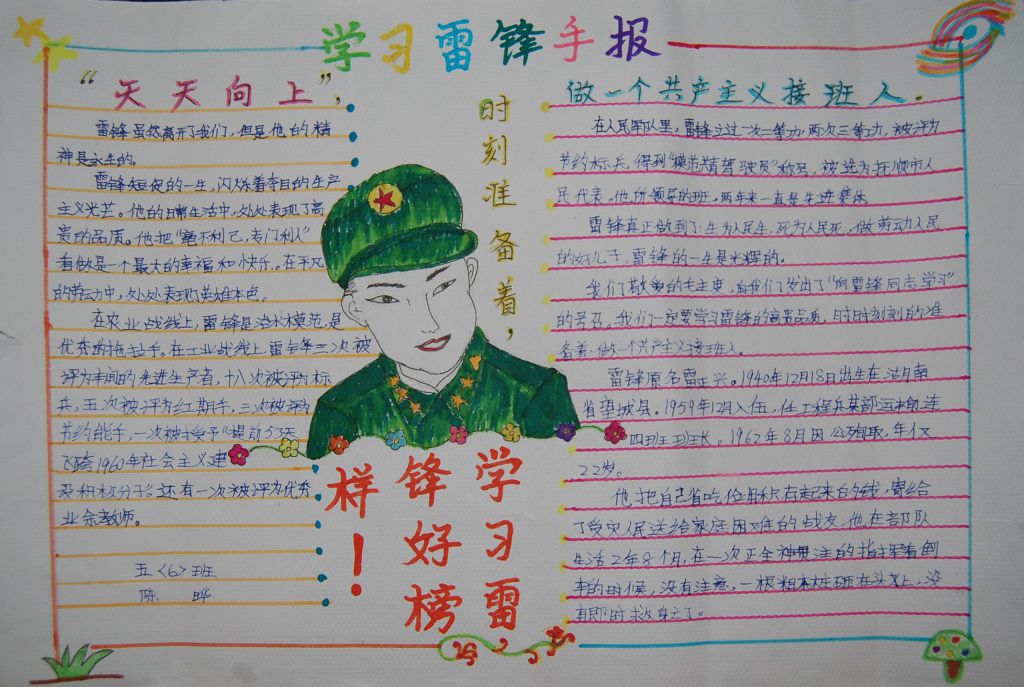 学习雷锋手报
“天天向上”，
雷锋虽然离开了我们，但是他的精
神是永生的。
雷锋短促的一生，闪烁着夺目的生产
主义光芒。他的日常生活中，处处表现了高
贵的品质。他把“毫不利己，专门利人”
看做是一个最大的幸福和快乐。在平凡
的劳动中，处处表现了英雄本色。
在农业战线上，雷锋是治水模范，是
优秀的拖拉手。在工业战线上，雷锋三次被
评为车间的先进生产者，十八次被评为标
兵，五次被评为红旗手，三次被评为
节约能手，一次被授予“提前
1960年社会主义建
积极分子”。还有一次被评为优秀
业余教师。
五〈6〉班
陈 晔
时刻准备着，
学习雷
锋好榜
样！
做一个共产主义接班人。
在人民军队里，雷锋立过一次二等功，两次三等功，被评为
节约标兵，得到“模范精驾驶员”称号，被选为抚顺市人
民代表。他所领导的班，两年来一直是先进集体。
雷锋真正做到了：生为人民生，死为人民死，做劳动人民
的好儿子。雷锋的一生是光辉的。
我们敬爱的毛主席，向我们发出了“向雷锋同志学习”
的号召。我们一定要学习雷锋的高贵品质，时时刻刻的准
备着，做一个共产主义接班人。
雷锋原名雷正兴。1940年12月18日出生在湖南
省望城县。1959年12月入伍，任工程兵某部运输连
四班班长。1962年8月因公殉职，年仅
22岁。
他把自己省吃俭用积存起来的钱，寄给
了受灾人民送给家庭困难的战友，他在部队
生活2年8个月，在一次正全神贯注的指挥着倒
车的时候，没有注意，一根粗木桩砸在头上，没
有即时救身亡了。